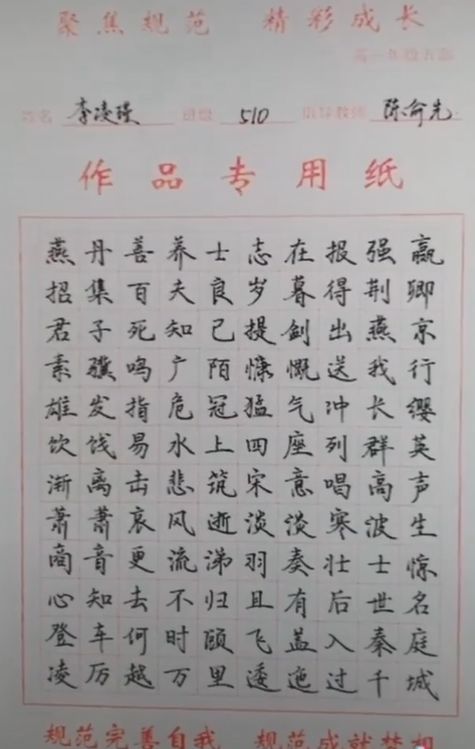 聚焦规范 精彩成长
姓名 李凌瑾 班级 510 指导教师 陈俞先
作品专用纸
燕丹善养士志在报强嬴
招集百夫良岁暮得荆卿
君子死知己提剑出燕京
素骥鸣广陌慷慨送我行
雄发指危冠猛气冲长缨
饮饯易水上四座列群英
渐离击悲筑宋意唱高声
萧萧哀风逝淡淡寒波生
商音更流涕羽奏壮士惊
心知去不归且有后世名
登车何时顾飞盖入秦庭
凌厉越万里逶迤过千城
规范完善自我 规范成就梦想